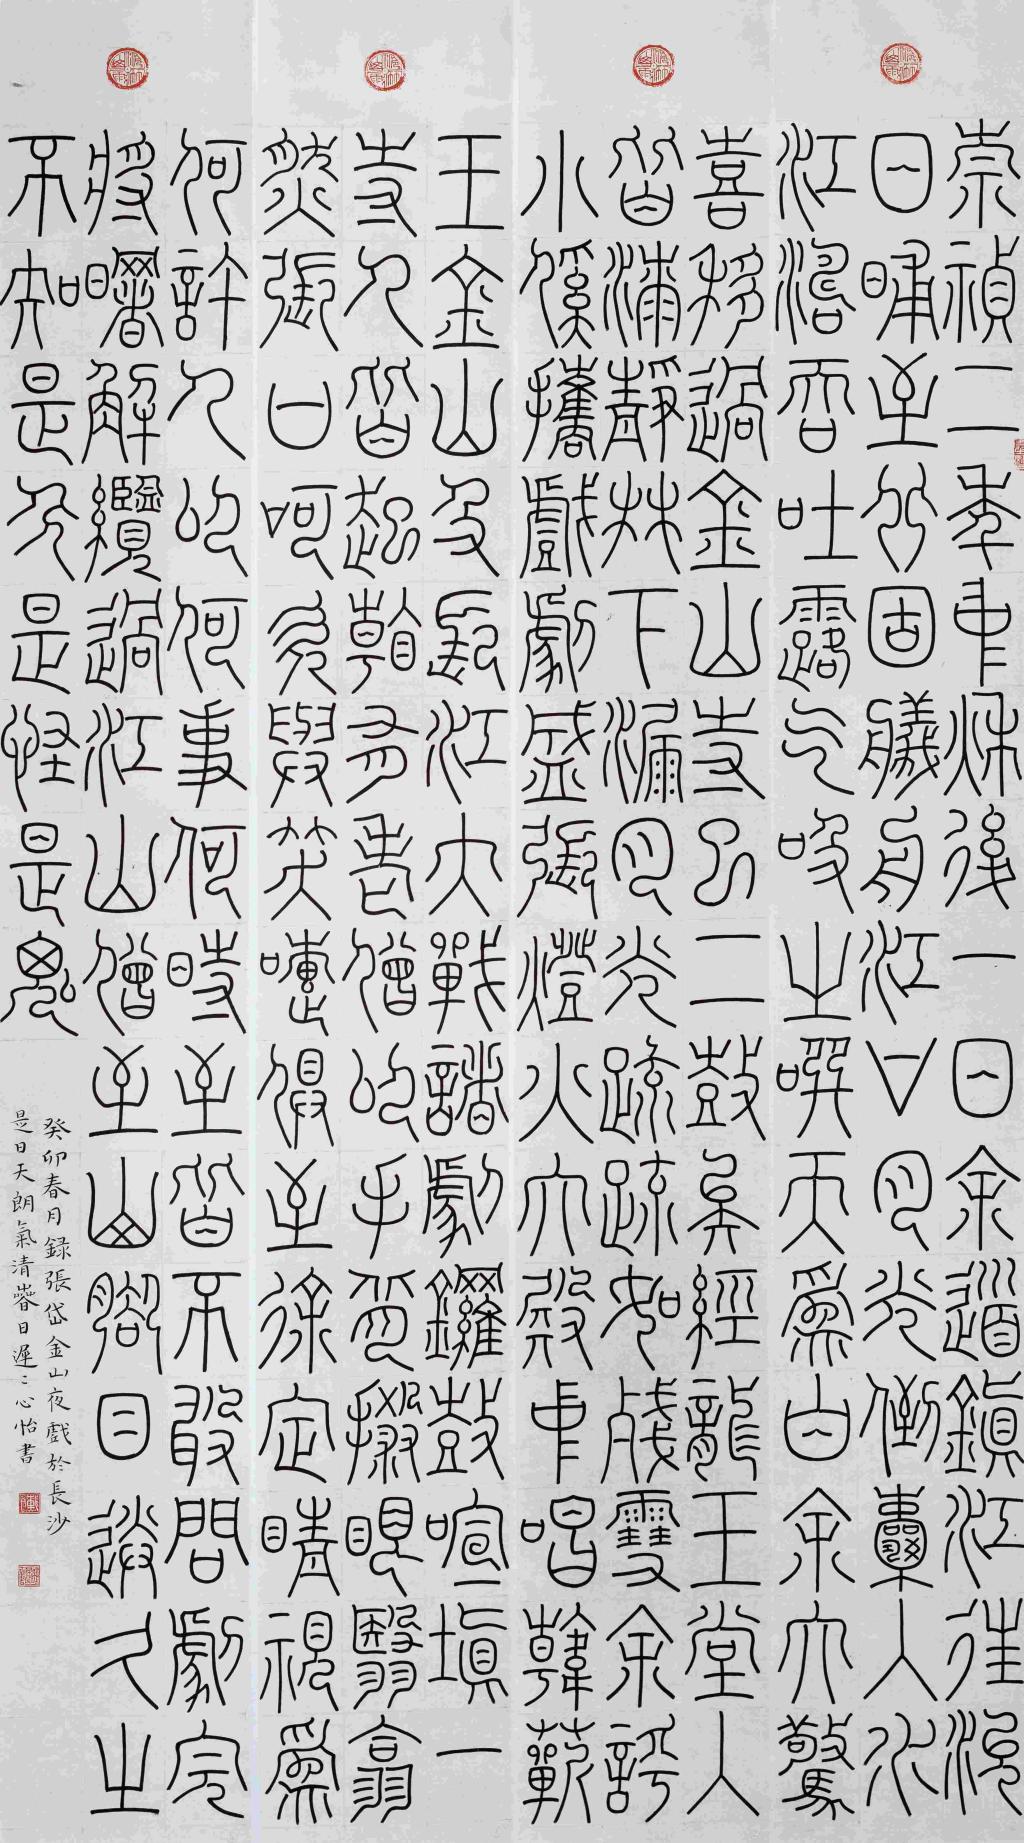 崇禎二年中秋後一日余道鎮江往兗
日晡至北固艤舟江口月光倒囊入水
江濤吞吐露气吸之噀天為白余大驚
喜移過金山寺已二鼓矣經龍王堂入
皆漆靜林下漏月光疏疏如殘雪余呼
小傒攜戲劇盛張燈火大殿中唱韓蘄
王金山及長江大戰諸劇鑼鼓喧填一
寺人皆起看有老僧以手背摋眼翳翕
然張口呵欠與笑嚏俱至徐定睛視為
何許人以何事何時至皆不敢問劇完
將曙解纜過江山僧至山腳目送久之
不知是人是怪是鬼
癸卯春月録張岱金山夜戲於長沙
是日天朗氣清春日遲〻心怡書